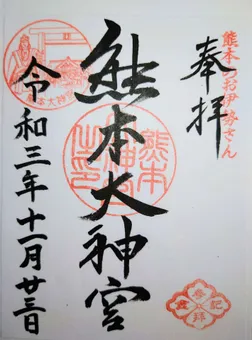 熊本のお伊勢さん
奉拝
熊本大神宮
熊本
令和三年十一月廿三日
参拝
記録